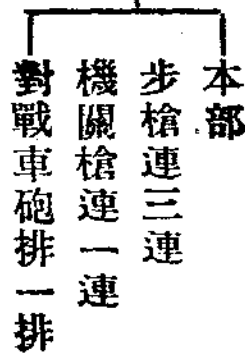 本部
步槍連三連
機關槍連一連
對戰車砲排一排